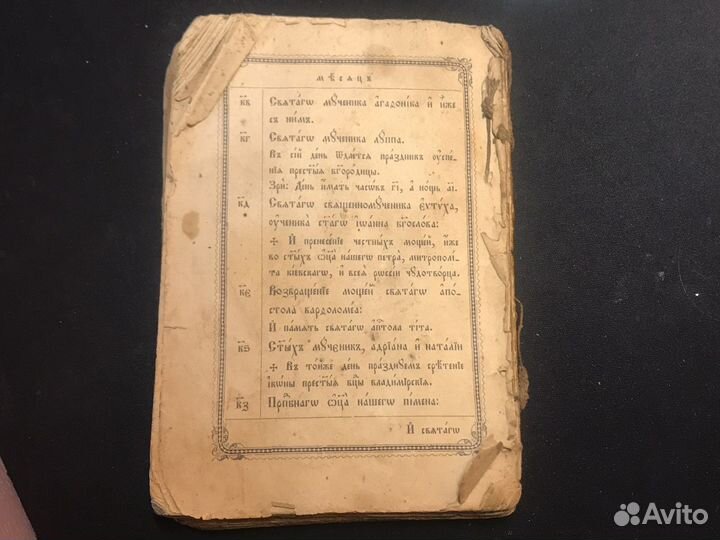 мѣсяцъ
к҃в Свята́гѡ мꙋ́ченика а҆гаѳоні́ка и҆ и҆́же
съ ни́мъ.
к҃г Свята́гѡ мꙋ́ченика лꙋ́ппа.
Въ се́й де́нь ѿдае́тся пра́здникъ ᲂу҆спе́-
нїя прест҃ы́я бг҃оро́дицы.
Зри̑: Де́нь и҆́мать часѡ́въ г҃і, а҆ но́щь а҃і.
к҃д Свята́гѡ свяще́нномꙋ́ченика є҆ѵтѵ́ха,
ᲂу҆ченика̀ ст҃а́гѡ і҆ѡа́нна бг҃осло́ва:
✢ И҆ пренесе́нїе че́стны́хъ моще́й, и҆́же
во ст҃ы́хъ ѻ҆ц҃а̀ на́шегѡ петра̀, митрополі́-
та кі́евскагѡ, и҆ всеѧ̀ рѡссі́и чꙋдотво́рца.
к҃є Возвраще́нїе моще́й свята́гѡ а҆по́-
стола варѳоломе́а:
И҆ па́мять свята́гѡ а҆п҇тола ті́та.
к҃ѕ Ст҃ы́хъ мꙋ́чєникъ, а҆дрїа́на и҆ ната́лїи
✢ Въ то́йже де́нь пра́зднꙋемъ срѣ́тенїе
і҆кѡ́ны прест҃ы́я бц҃ы влади́мїрскїя.
к҃з Прп҇бнагѡ ѻ҆ц҃а̀ на́шегѡ пі́мена:
И҆ свята́гѡ
Avito